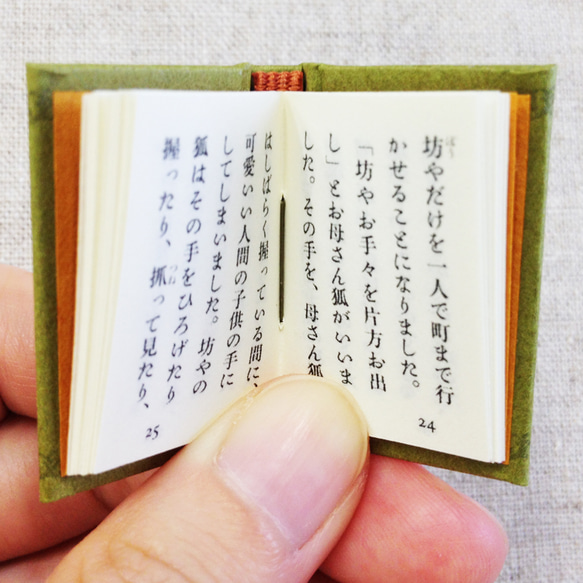 坊やだけを一人で町まで行
かせることになりました。
「坊やお手々を片方お出
し」とお母さん狐がいいま
した。その手を、母さん狐
24
はしばらく握っている間に、
可愛いい人間の子供の手に
してしまいました。坊やの
狐はその手をひろげたり
握ったり、抓って見たり、
25